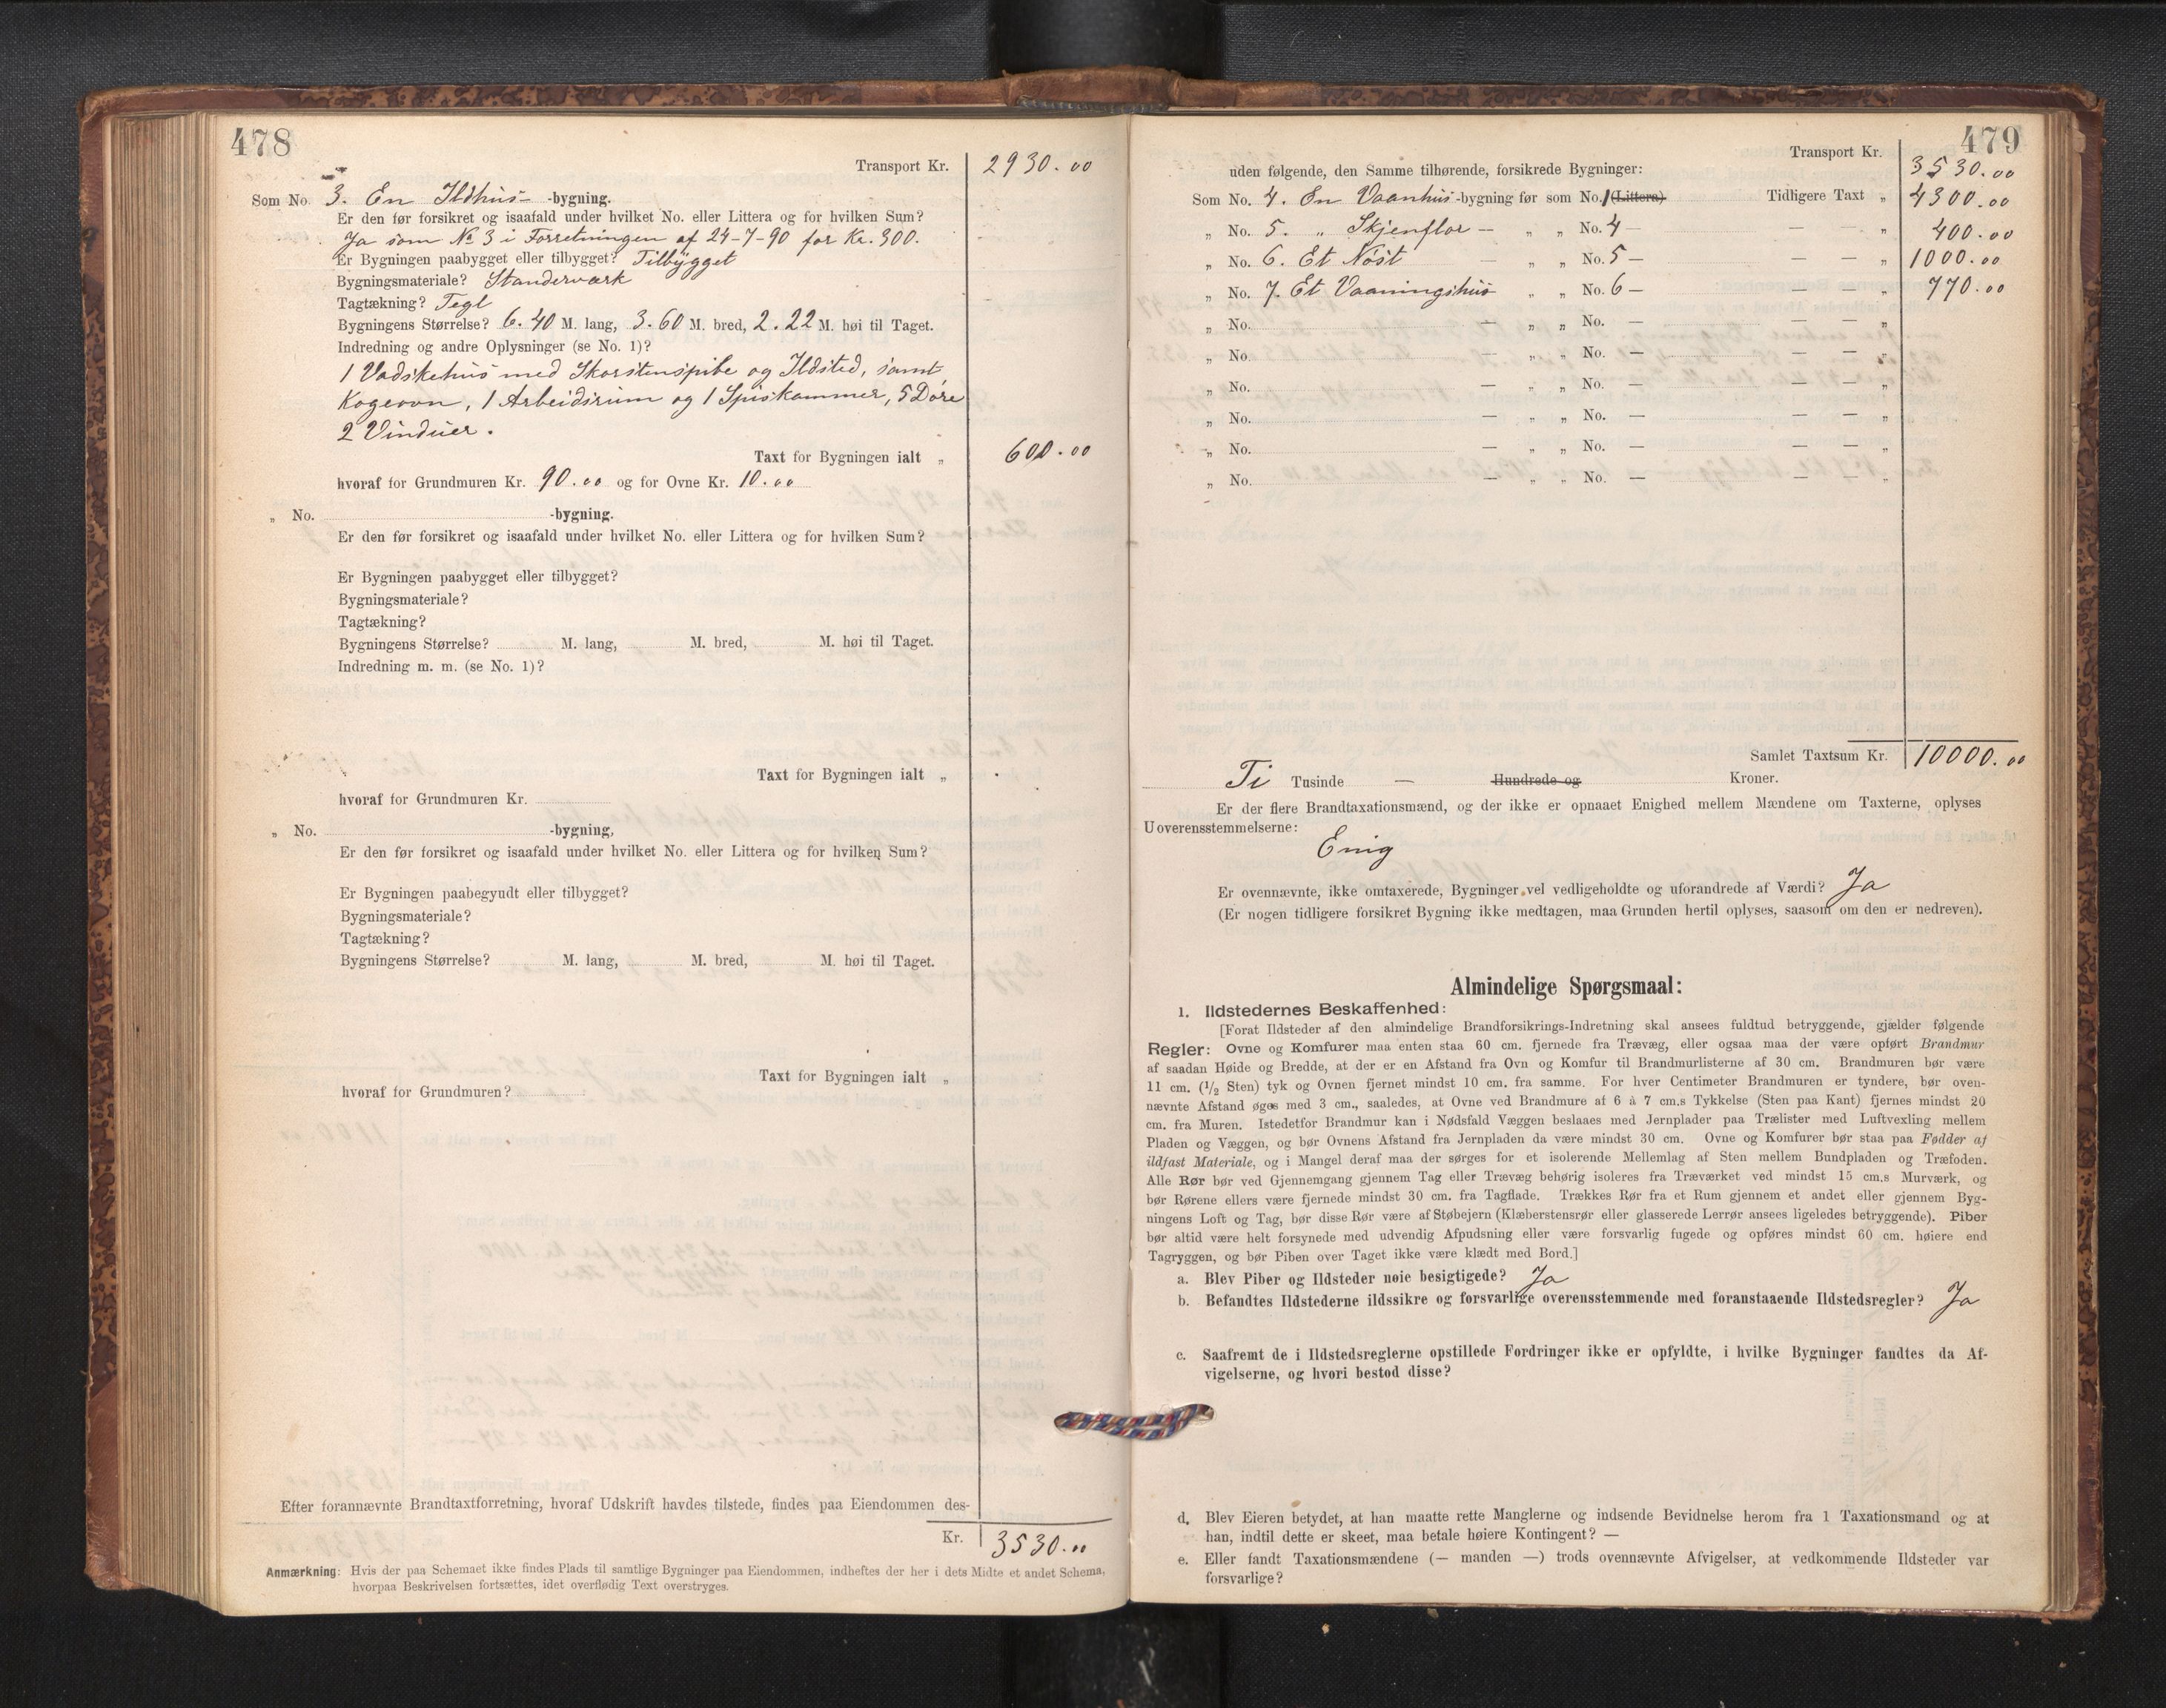 478
Transport Kr. 2930.00
Som No. 3. En Ildhus- -bygning.
Er den før forsikret og isaafald under hvilket No. eller Littera og for hvilken Sum?
Ja som No 3 i Forretningen af 24-7-90 for Kr. 300.
Er Bygningen paabygget eller tilbygget? Tilbygget
Bygningsmateriale? Standerværk
Tagtækning? Tegl
Bygningens Størrelse? 6.40 M. lang, 3.60 M. bred, 2.22 M. høi til Taget.
Indredning og andre Oplysninger (se No. 1)?
1 Vadskehus med Skorstenspibe og Ildsted, samt
Kogeovn, 1 Arbeidsrum og 1 Spiskammer, 5 Døre
2 Vinduer.
Taxt for Bygningen ialt „ 600.00
hvoraf for Grundmuren Kr. 90.00 og for Ovne Kr. 10.00
„ No. -bygning.
Er den før forsikret og isaafald under hvilket No. eller Littera og for hvilken Sum?
Er Bygningen paabygget eller tilbygget?
Bygningsmateriale?
Tagtækning?
Bygningens Størrelse? M. lang, M. bred, M. høi til Taget.
Indredning m. m. (se No. 1)?
Taxt for Bygningen ialt „
hvoraf for Grundmuren Kr.
„ No. -bygning,
Er den før forsikret og isaafald under hvilket No. eller Littera og for hvilken Sum?
Er Bygningen paabegyndt eller tilbygget?
Bygningsmateriale?
Tagtækning?
Bygningens Størrelse? M. lang, M. bred, M. høi til Taget.
Taxt for Bygningen ialt „
hvoraf for Grundmuren?
Efter forannævnte Brandtaxtforretning, hvoraf Udskrift havdes tilstede, findes paa Eiendommen des-
Kr. 3530.00
Anmærkning: Hvis der paa Schemaet ikke findes Plads til samtlige Bygninger paa Eiendommen, indheftes der her i dets Midte et andet Schema,
hvorpaa Beskrivelsen fortsættes, idet overflødig Text overstryges.
479
Transport Kr. 3530.00
uden følgende, den Samme tilhørende, forsikrede Bygninger:
Som No. 4. En Vaanhus -bygning før som No. 1 (Littera) Tidligere Taxt „ 4300.00
„ No. 5. „ Skjenflor — „ „ No. 4 — — — „ 400.00
„ No. 6. Et Nöst — „ „ No. 5 — — — „ 1000.00
„ No. 7. Et Vaaningshus „ „ No. 6 — — — „ 770.00
„ No. — „ „ No. — — — „
„ No. — „ „ No. — — — „
„ No. — „ „ No. — — — „
„ No. — „ „ No. — — — „
„ No. — „ „ No. — — — „
„ No. — „ „ No. — — — „
Samlet Taxtsum Kr. 10000.00
Ti Tusinde — Hundrede og Kroner.
Er der flere Brandtaxationsmænd, og der ikke er opnaaet Enighed mellem Mændene om Taxterne, oplyses
Uoverensstemmelserne:
Enig
Er ovennævnte, ikke omtaxerede, Bygninger vel vedligeholdte og uforandrede af Værdi? Ja
(Er nogen tidligere forsikret Bygning ikke medtagen, maa Grunden hertil oplyses, saasom om den er nedreven).
Almindelige Spørgsmaal:
1. Ildstedernes Beskaffenhed:
[Forat Ildsteder af den almindelige Brandforsikrings-Indretning skal ansees fuldtud betryggende, gjælder følgende
Regler: Ovne og Komfurer maa enten staa 60 cm. fjernede fra Trævæg, eller ogsaa maa der være opført Brandmur
af saadan Høide og Bredde, at der er en Afstand fra Ovn og Komfur til Brandmurlisterne af 30 cm. Brandmuren bør være
11 cm. (1/2 Sten) tyk og Ovnen fjernet mindst 10 cm. fra samme. For hver Centimeter Brandmuren er tyndere, bør oven-
nævnte Afstand øges med 3 cm., saaledes, at Ovne ved Brandmure af 6 à 7 cm.s Tykkelse (Sten paa Kant) fjernes mindst 20
cm. fra Muren. Istedetfor Brandmur kan i Nødsfald Væggen beslaaes med Jernplader paa Trælister med Luftvexling mellem
Pladen og Væggen, og bør Ovnens Afstand fra Jernpladen da være mindst 30 cm. Ovne og Komfurer bør staa paa Fødder af
ildfast Materiale, og i Mangel deraf maa der sørges for et isolerende Mellemlag af Sten mellem Bundpladen og Træfoden.
Alle Rør bør ved Gjennemgang gjennem Tag eller Trævæg behørig isoleres fra Træværket ved mindst 15 cm.s Murværk, og
bør Rørene ellers være fjernede mindst 30 cm. fra Tagflade. Trækkes Rør fra et Rum gjennem et andet eller gjennem Byg-
ningens Loft og Tag, bør disse Rør være af Støbejern (Klæberstensrør eller glasserede Lerrør ansees ligeledes betryggende). Piber
bør altid være helt forsynede med udvendig Afpudsning eller være forsvarlig fugede og opføres mindst 60 cm. høiere end
Tagryggen, og bør Piben over Taget ikke være klædt med Bord.]
a. Blev Piber og Ildsteder nøie besigtigede? Ja
b. Befandtes Ildstederne ildssikre og forsvarlige overensstemmende med foranstaaende Ildstedsregler? Ja
c. Saafremt de i Ildstedsreglerne opstillede Fordringer ikke er opfyldte, i hvilke Bygninger fandtes da Af-
vigelserne, og hvori bestod disse?
d. Blev Eieren betydet, at han maatte rette Manglerne og indsende Bevidnelse herom fra 1 Taxationsmand og at
han, indtil dette er skeet, maa betale høiere Kontingent? —
e. Eller fandt Taxationsmændene (— manden —) trods ovennævnte Afvigelser, at vedkommende Ildsteder var
forsvarlige?